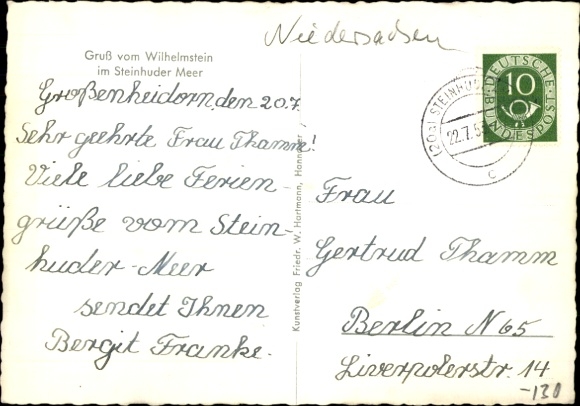 Niedersachsen
Gruß vom Wilhelmstein
im Steinhuder Meer
Großenheidorn, den 20.7.
Sehr geehrte Frau Thamm!
Viele liebe Ferien-
grüße vom Stein-
huder-Meer
sendet Ihnen
Bergit Franke.
Kunstverlag Friedr. W. Hartmann, Hannover
DEUTSCHE BUNDESPOST
10
(20a) STEINHUDE
22.7.5
c
Frau
Gertrud Thamm
Berlin N 65
Liverpolerstr. 14
-130